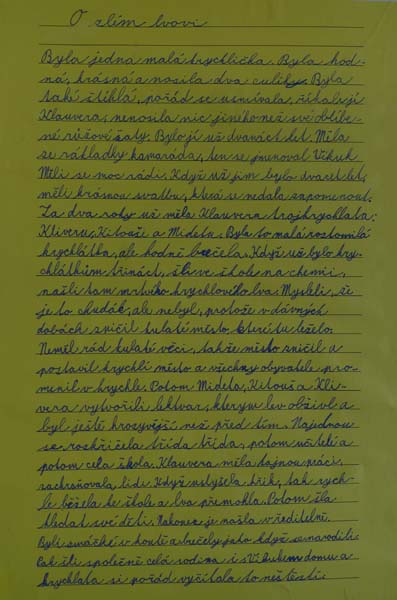 O zlém lvovi
Byla jedna malá krychlička. Byla hod-
ná, krásná a nosila dva culíky. Byla
také štíhlá, pořád se usmívala, říkali jí
Klauvera, nenosila nic jiného než své oblíbe-
né růžové šaty. Bylo jí už dvanáct let. Měla
se základky kamaráda, ten se jmenoval Vikuk
Měli se moc rádi. Když už jim bylo dvacet let,
měli krásnou svatbu, která se nedala zapomenout.
Za dva roky už měla Klauvera trojkrychlata:
Kliveru, Kitouše a Mideta. Byla to malá roztomilá
krychlátka, ale hodně brečela. Když už bylo kry-
chlátkům třináct, šli ve škole na chemii,
našli tam mrtvého krychlového lva. Mysleli, že
je to chudák, ale nebyl, protože v dávných
dobách zničil kulaté město, které tu leželo.
Neměl rád kulaté věci, takže město zničil a
postavil krychlí město a všechny obyvatele pro-
měnil v krychle. Potom Mideta, Kitouš a Kli-
vera vytvořili lektvar, kterým lev obživl a
byl ještě hrozivější než před tím. Najednou
se rozkřičela třída třída, potom učitelé a
potom celá škola. Klauvera měla tajnou práci,
zachraňovala lidi. Když uslyšela křik, tak rych-
le běžela ke škole a lva přemohla. Potom šla
hledat své děti. Nakonec je našla v ředitelně.
Byli smáčklé v koutě a brečely jako když se narodili.
Pak šli společně celá rodina i s Vikukem domů a
krychlata si pořád vyčítala to neštěstí.